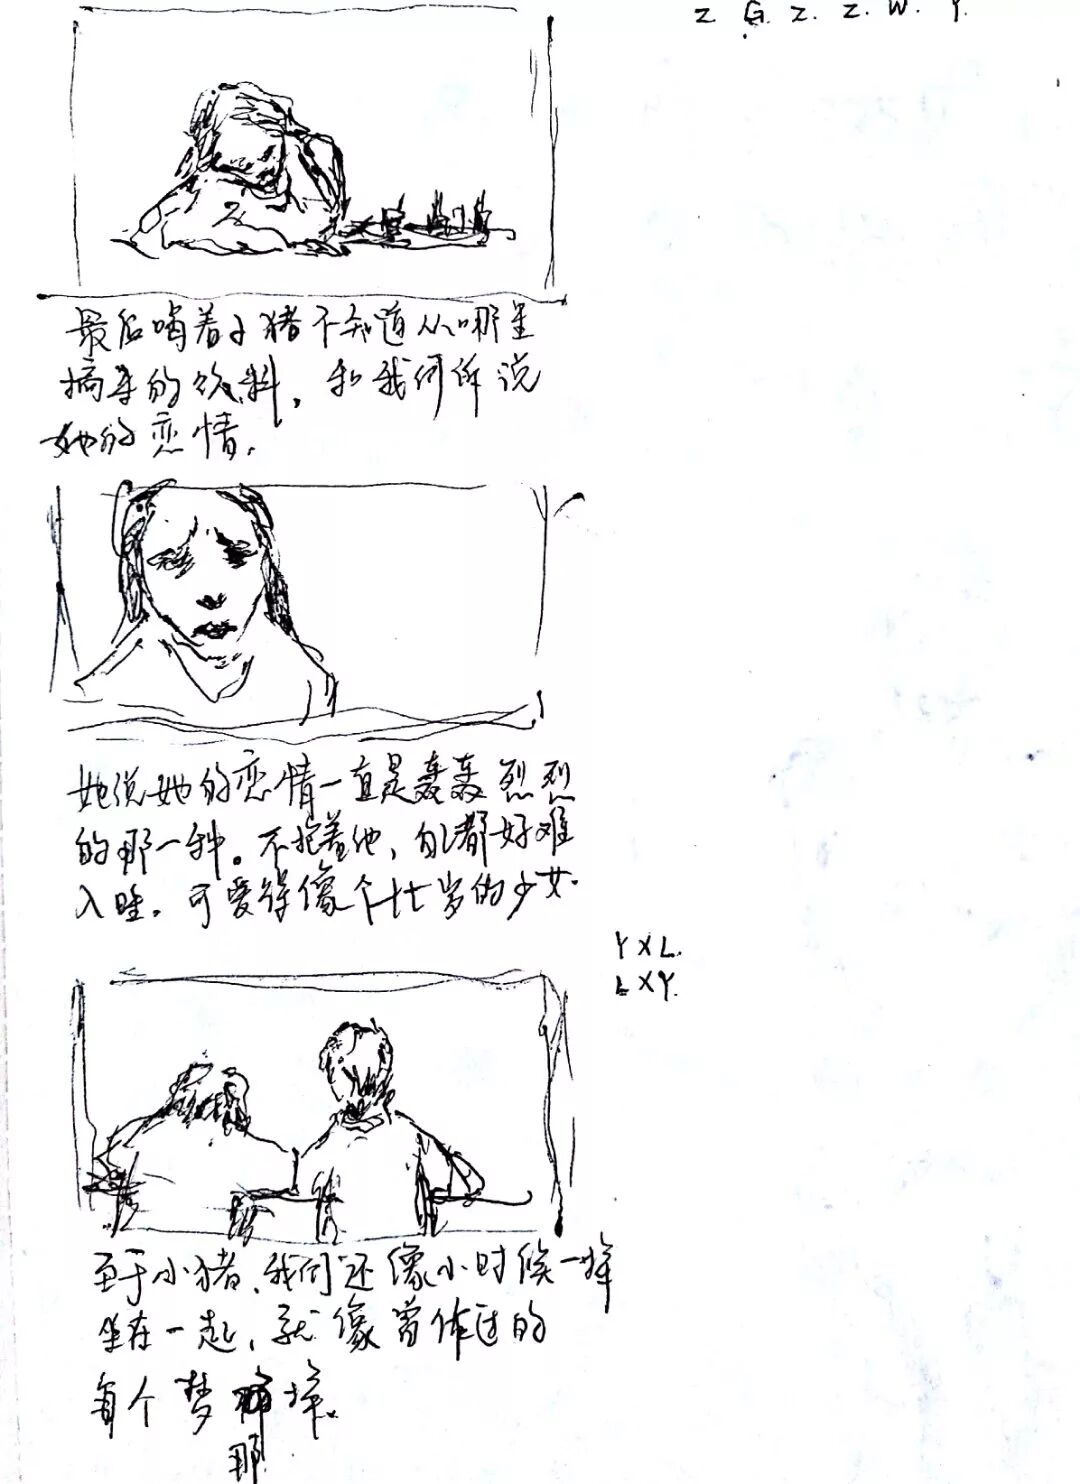 Z G. Z. Z. W. Y.
最后喝着小猪不知道从哪里
搞来的饮料，和我们诉说
她的恋情。
她说她的恋情一直是轰轰烈烈
的那一种。不抱着他，自己都好难
入睡。可爱得像个廿七岁的少女。
YXL.
LXY.
至于小猪、我们还像小时候一样
坐在一起，就像曾作过的
每个梦 样。
那